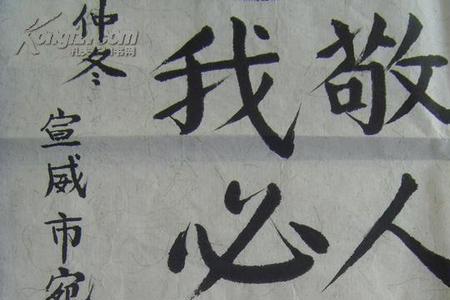 敬人
我必
仲冬
宣威市宛
Kongfz.com
孔夫子旧书网